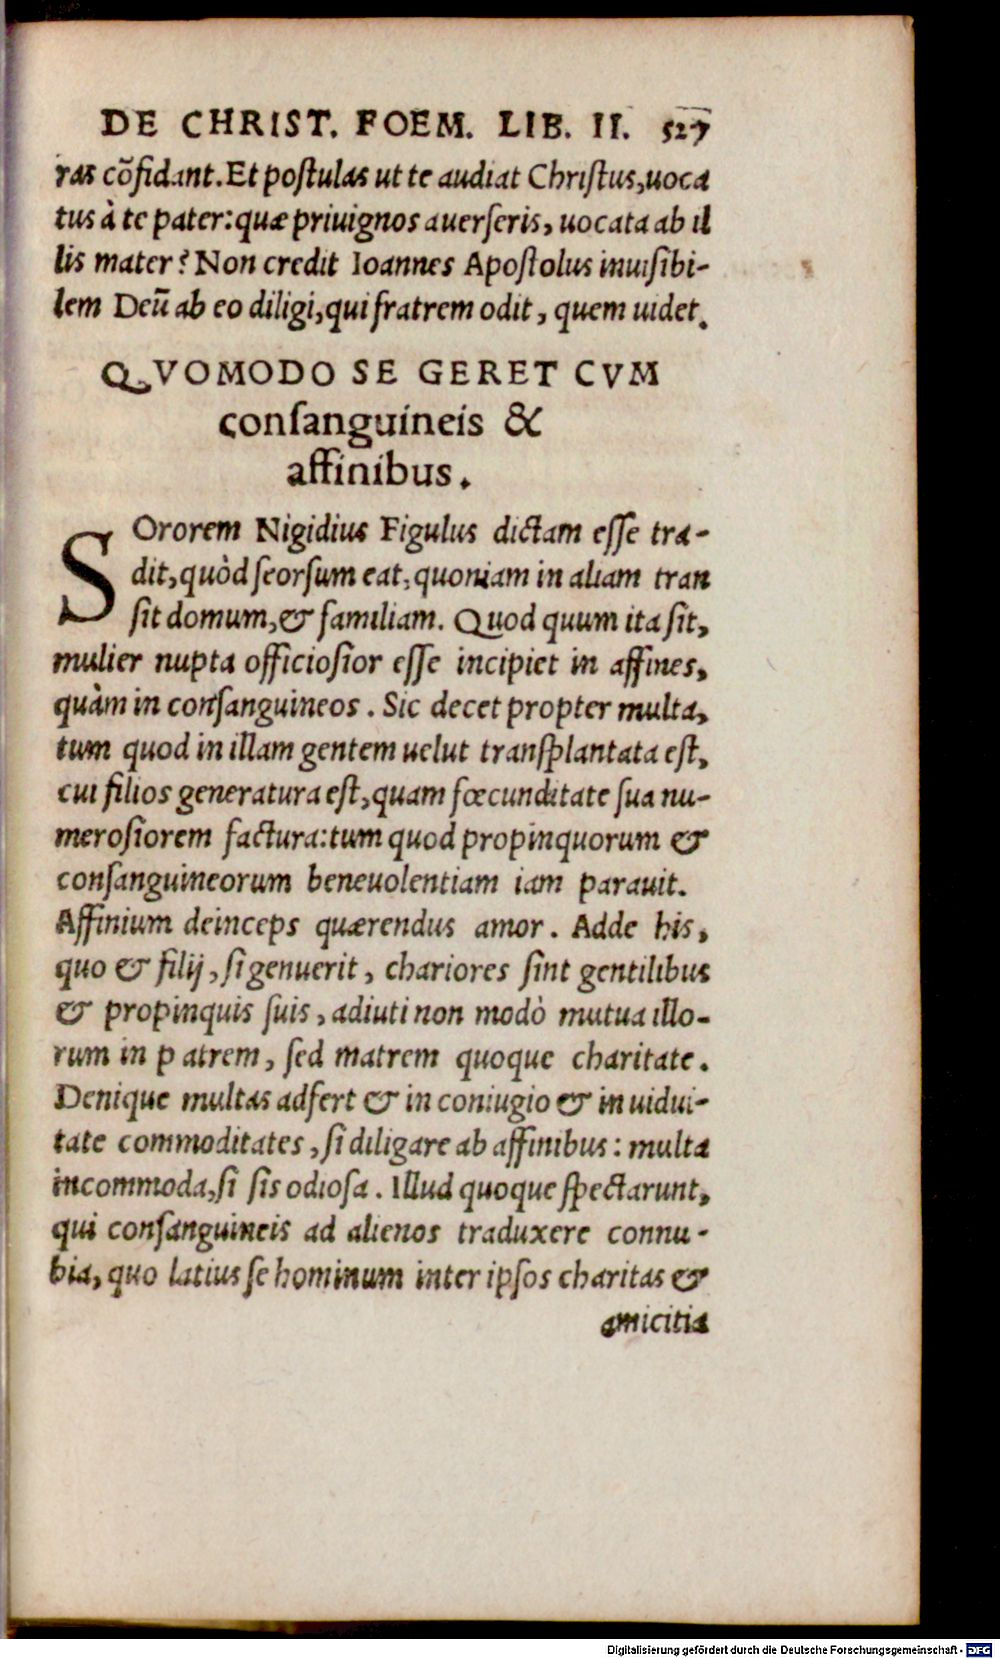 DE CHRIST. FOEM. LIB. II. 527
ras cõfidant. Et poſtulas ut te audiat Chriſtus, uoca
tus à te pater: quæ priuignos auerſeris, uocata ab il
lis mater? Non credit Ioannes Apoſtolus inuiſibi-
lem Deũ ab eo diligi, qui fratrem odit, quem uidet.
QVOMODO SE GERET CVM
conſanguineis &
affinibus.
SOrorem Nigidius Figulus dictam eſſe tra-
dit, quòd ſeorſum eat, quoniam in aliam tran
ſit domum, & familiam. Quod quum ita ſit,
mulier nupta officioſior eſſe incipiet in affines,
quàm in conſanguineos. Sic decet propter multa,
tum quod in illam gentem uelut tranſplantata eſt,
cui filios generatura eſt, quam fœcunditate ſua nu-
meroſiorem factura: tum quod propinquorum &
conſanguineorum beneuolentiam iam parauit.
Affinium deinceps quærendus amor. Adde his,
quo & filij, ſi genuerit, chariores ſint gentilibus
& propinquis ſuis, adiuti non modò mutua illo-
rum in patrem, ſed matrem quoque charitate.
Denique multas adfert & in coniugio & in uidui-
tate commoditates, ſi diligare ab affinibus: multa
incommoda, ſi ſis odioſa. Illud quoque ſpectarunt,
qui conſanguineis ad alienos traduxere connu-
bia, quo latius ſe hominum inter ipſos charitas &
amicitia
Digitalisierung gefördert durch die Deutsche Forschungsgemeinschaft - DFG